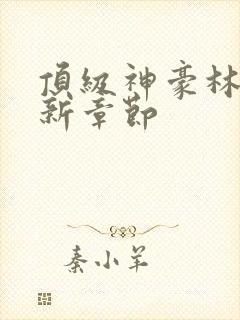 頂級神豪林
新章節
秦小羊